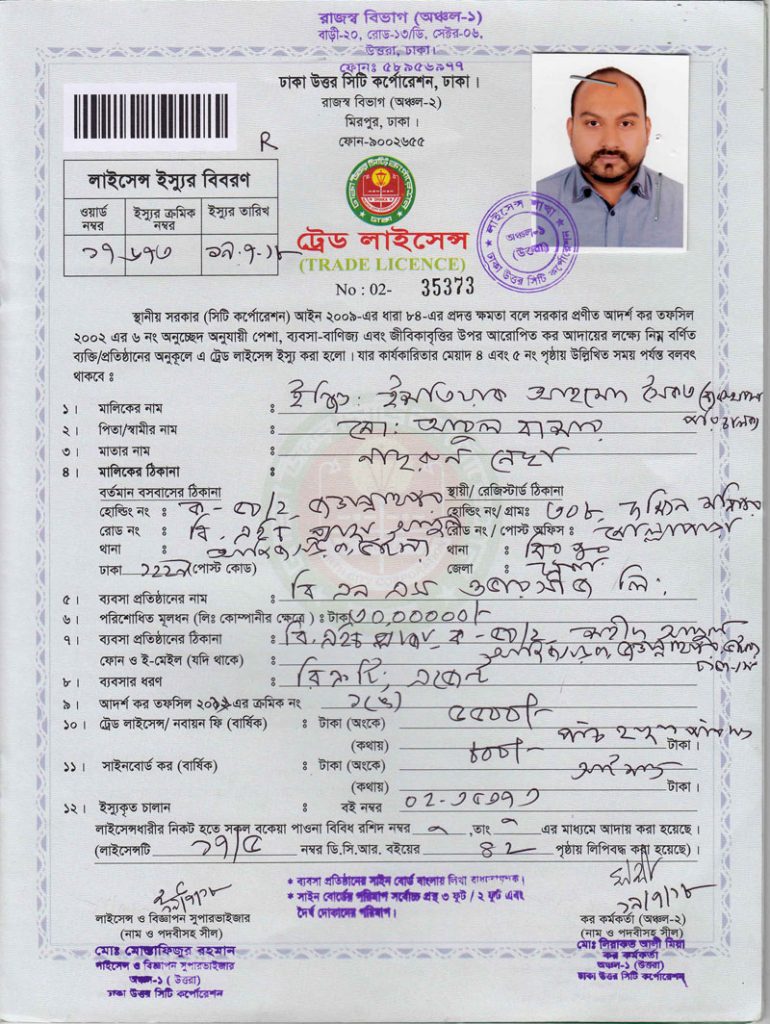 রাজস্ব বিভাগ (অঞ্চল-১)
বাড়ী-২০, রোড-১৩/ডি, সেক্টর-০৬,
উত্তরা, ঢাকা।
ফোনঃ ৫৮৯৫৬৯৭৭
ঢাকা উত্তর সিটি কর্পোরেশন, ঢাকা।
রাজস্ব বিভাগ (অঞ্চল-২)
মিরপুর, ঢাকা।
ফোন-৯০০২৬৫৫
R
লাইসেন্স ইস্যুর বিবরণ
ওয়ার্ড নম্বর
ইস্যুর ক্রমিক নম্বর
ইস্যুর তারিখ
১৭
ট্রেড লাইসেন্স
(TRADE LICENCE)
No : 02- 35373
লাইসেন্স শাখা
অঞ্চল-১
(উত্তরা)
ঢাকা উত্তর সিটি কর্পোরেশন
স্থানীয় সরকার (সিটি কর্পোরেশন) আইন ২০০৯-এর ধারা ৮৪-এর প্রদত্ত ক্ষমতা বলে সরকার প্রণীত আদর্শ কর তফসিল
২০০২ এর ৬ নং অনুচ্ছেদ অনুযায়ী পেশা, ব্যবসা-বাণিজ্য এবং জীবিকাবৃত্তির উপর আরোপিত কর আদায়ের লক্ষ্যে নিম্ন বর্ণিত
ব্যক্তি/প্রতিষ্ঠানের অনুকূলে এ ট্রেড লাইসেন্স ইস্যু করা হলো। যার কার্যকারিতার মেয়াদ ৪ এবং ৫ নং পৃষ্ঠায় উল্লিখিত সময় পর্যন্ত বলবৎ
থাকবে ঃ
১। মালিকের নাম ঃ
২। পিতা/স্বামীর নাম ঃ মো: আবুল বাসার
৩। মাতার নাম ঃ
৪। মালিকের ঠিকানা ঃ
বর্তমান বসবাসের ঠিকানা স্থায়ী/ রেজিস্টার্ড ঠিকানা
হোল্ডিং নং ঃ হোল্ডিং নং/ গ্রামঃ ৩০৮, দক্ষিন
রোড নং ঃ রোড নং / পোস্ট অফিস ঃ মোল্লাপাড়া
থানা ঃ থানা ঃ
ঢাকা ১২২৯ (পোস্ট কোড) জেলা ঃ
৫। ব্যবসা প্রতিষ্ঠানের নাম ঃ বি এন এস ওভারসীজ লি:
৬। পরিশোধিত মূলধন (লিঃ কোম্পানীর ক্ষেত্রে) ঃ টাকা ৩০,০০০০০/-
৭। ব্যবসা প্রতিষ্ঠানের ঠিকানা ঃ
ফোন ও ই-মেইল (যদি থাকে) ঃ
৮। ব্যবসার ধরণ ঃ রিক্রুটিং এজেন্ট
৯। আদর্শ কর তফসিল এর ক্রমিক নং ঃ
১০। ট্রেড লাইসেন্স/ নবায়ন ফি (বার্ষিক) ঃ টাকা (অংকে) ৫৫০০/-
(কথায়) পাঁচ হাজার পাঁচ শত টাকা।
১১। সাইনবোর্ড কর (বার্ষিক) ঃ টাকা (অংকে) ৮০০/-
(কথায়) আট শত টাকা।
১২। ইস্যুকৃত চালান ঃ বই নম্বর
লাইসেন্সধারীর নিকট হতে সকল বকেয়া পাওনা বিবিধ রশিদ নম্বর ,তাং এর মাধ্যমে আদায় করা হয়েছে।
(লাইসেন্সটি ১৭/৫ নম্বর ডি.সি.আর. বইয়ের ৪২ পৃষ্ঠায় লিপিবদ্ধ করা হয়েছে)।
* ব্যবসা প্রতিষ্ঠানের সাইন বোর্ড বাংলায় লিখা বাধ্যতামূলক।
* সাইন বোর্ডের পরিমাপ সর্বোচ্চ প্রস্থ ৩ ফুট / ২ ফুট এবং
দৈর্ঘ দোকানের পরিমাপ।
লাইসেন্স ও বিজ্ঞাপন সুপারভাইজার
(নাম ও পদবীসহ সীল)
মোঃ মোস্তাফিজুর রহমান
লাইসেন্স ও বিজ্ঞাপন সুপারভাইজার
অঞ্চল-১ (উত্তরা)
ঢাকা উত্তর সিটি কর্পোরেশন
কর কর্মকর্তা (অঞ্চল-২)
(নাম ও পদবীসহ সীল)
মোঃ লিয়াকত আলী মিয়া
কর কর্মকর্তা
অঞ্চল-১ (উত্তরা)
ঢাকা উত্তর সিটি কর্পোরেশন